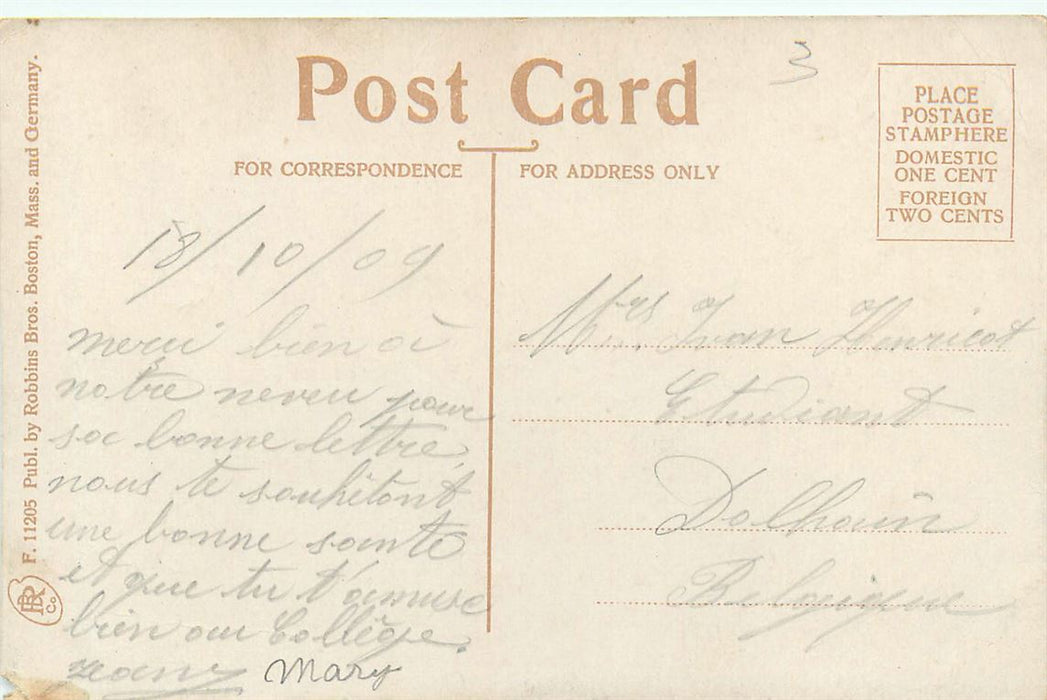 Post Card
3
PLACE
POSTAGE
STAMP HERE
DOMESTIC
ONE CENT
FOREIGN
TWO CENTS
FOR CORRESPONDENCE
FOR ADDRESS ONLY
F. 11205 Publ. by Robbins Bros. Boston, Mass. and Germany.
RB Co
18/10/09
merci bien à
notre neveu pour
sa bonne lettre,
nous te souhitont
une bonne sante
et que tu t'amuse
bien au Collège.
Mary
Mrs Ivan Henricot
Etudiant
Dolhain
Belgique